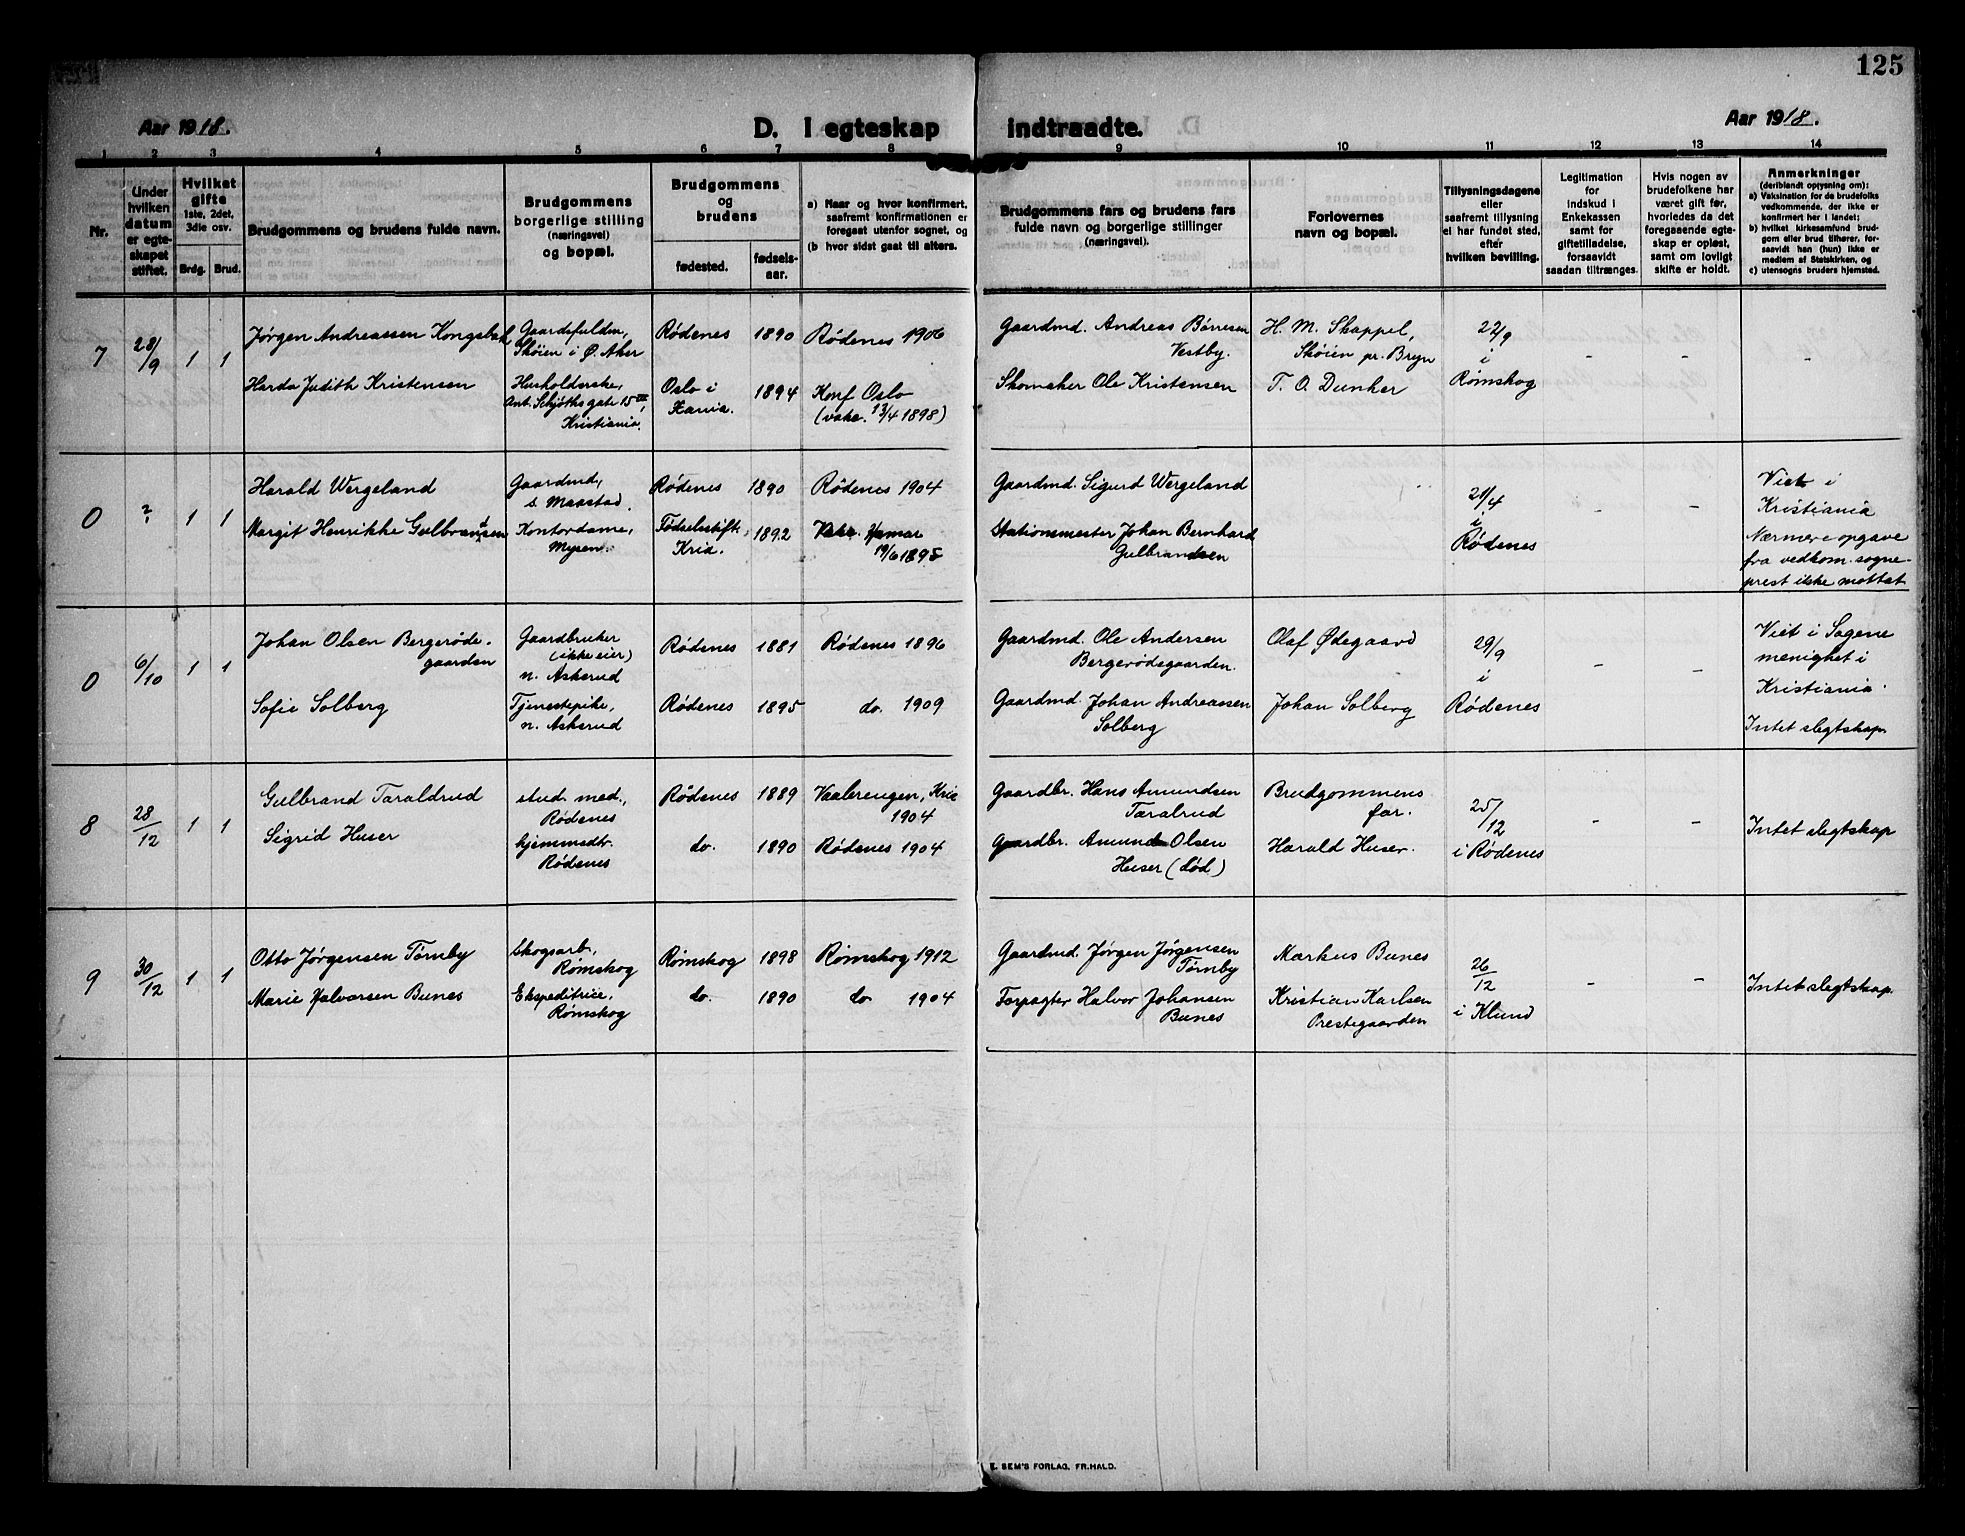 125
Aar 1918.
D. I egteskap indtraadte.
Aar 1918.
1 2 3 4 5 6 7 8 9 10 11 12 13 14
Nr.
Under hvilken datum er egteskapet stiftet.
Hvilket gifte
1ste, 2det, 3die osv.
Brdg. Brud.
Brudgommens og brudens fulde navn.
Brudgommens
borgerlige stilling
(næringsvei)
og bopæl.
Brudgommens
og
brudens
fødested.
fødsels-
aar.
a) Naar og hvor konfirmert,
saafremt konfirmationen er
foregaat utenfor sognet, og
(b hvor sidst gaat til alters.
Brudgommens fars og brudens fars
fulde navn og borgerlige stillinger
(næringsvei).
Forlovernes
navn og bopæl.
Tillysningsdagene
eller
saafremt tillysning
ei har fundet sted,
efter
hvilken bevilling.
Legitimation
for
indskud i
Enkekassen
samt for
giftetilladelse,
forsaavidt
saadan tiltrænges.
Hvis nogen av
brudefolkene har
været gift før,
hvorledes da det
foregaaende egte-
skap er opløst,
samt om lovligt
skifte er holdt.
Anmerkninger
(deriblandt oplysning om):
a) Vaksination for de brudefolks
vedkommende, der ikke er
konfirmert her i landet;
b) hvilket kirkesamfund brud-
gom eller brud tilhører, for-
saavidt han (hun) ikke er
medlem af Statskirken, og
c) utensogns bruders hjemsted.
7
28/9
1 1
Jørgen Andreassen Kongsbak
Gaardsfuldm,
Skøien i Ø. Aker
Rødenes 1890 Rødenes 1906
Gaardmd. Andreas Børresen
Vestby.
H. M. Skappel,
Skøien pr. Bryn
22/9
i
Rømskog
- - -
Herda Judith Kristensen
Husholderske,
Ant. Schjøths gate 15 III,
Kristiania.
Oslo i
Xania.
1894
Konf Oslo
(vakc. 13/4 1898)
Skomaker Ole Kristensen
T. O. Dunker
0
?
1 1
Harald Wergeland
Gaardmd,
s. Maastad.
Rødenes 1890 Rødenes 1904
Gaardmd. Sigurd Wergeland
21/4
i
Rødenes
- -
Viet i
Kristiania
Nærmere opgave
fra vedkom. sogne-
prest ikke mottat
Margit Henrikke Gulbrandsen
Kontordame,
Mysen.
Fødselsstift.
Kria.
1892
Vakc. Hamar
19/6 1895
Stationsmester Johan Bernhard
Gulbrandsen
0
6/10
1 1
Johan Olsen Bergerøds-
gaarden
Gaardbruker
(ikke eier)
n. Askerud
Rødenes 1881 Rødenes 1896
Gaardmd. Ole Andersen
Bergerødsgaarden.
Olaf Ødegaard
29/9
i
Rødenes
- -
Viet i Sagene
menighet i
Kristiania.
Intet slegtskap
Sofie Solberg
Tjenestepike,
n. Askerud
Rødenes 1895 do. 1909
Gaardmd. Johan Andreassen
Solberg
Johan Solberg
8
28/12
1 1
Gulbrand Taraldrud
stud. med.,
Rødenes
Rødenes 1889
Vaalerengen, Kria
1904
Gaardbr. Hans Amundsen
Taralrud
Brudgommens
far.
25/12
i Rødenes
- -
Intet slegtskap
Sigrid Huser
hjemmedtr.
Rødenes
do. 1890 Rødenes 1904
Gaardbr. Amund Olsen
Huser (død)
Harald Huser.
9
30/12
1 1
Otto Jørgensen Tørnby
Skogsarb,
Rømskog
Rømskog 1898 Rømskog 1912
Gaardmd. Jørgen Jørgensen
Tørnby
Markus Bunes
26/12
i Klund
- -
Intet slegtskap.
Marie Halvorsen Bunes
Ekspeditrice,
Rømskog
do. 1890 do 1904
Forpagter Halvor Johansen
Bunes
Kristian Karlsen
Prestegaarden
E. SEM'S FORLAG, FR.HALD.